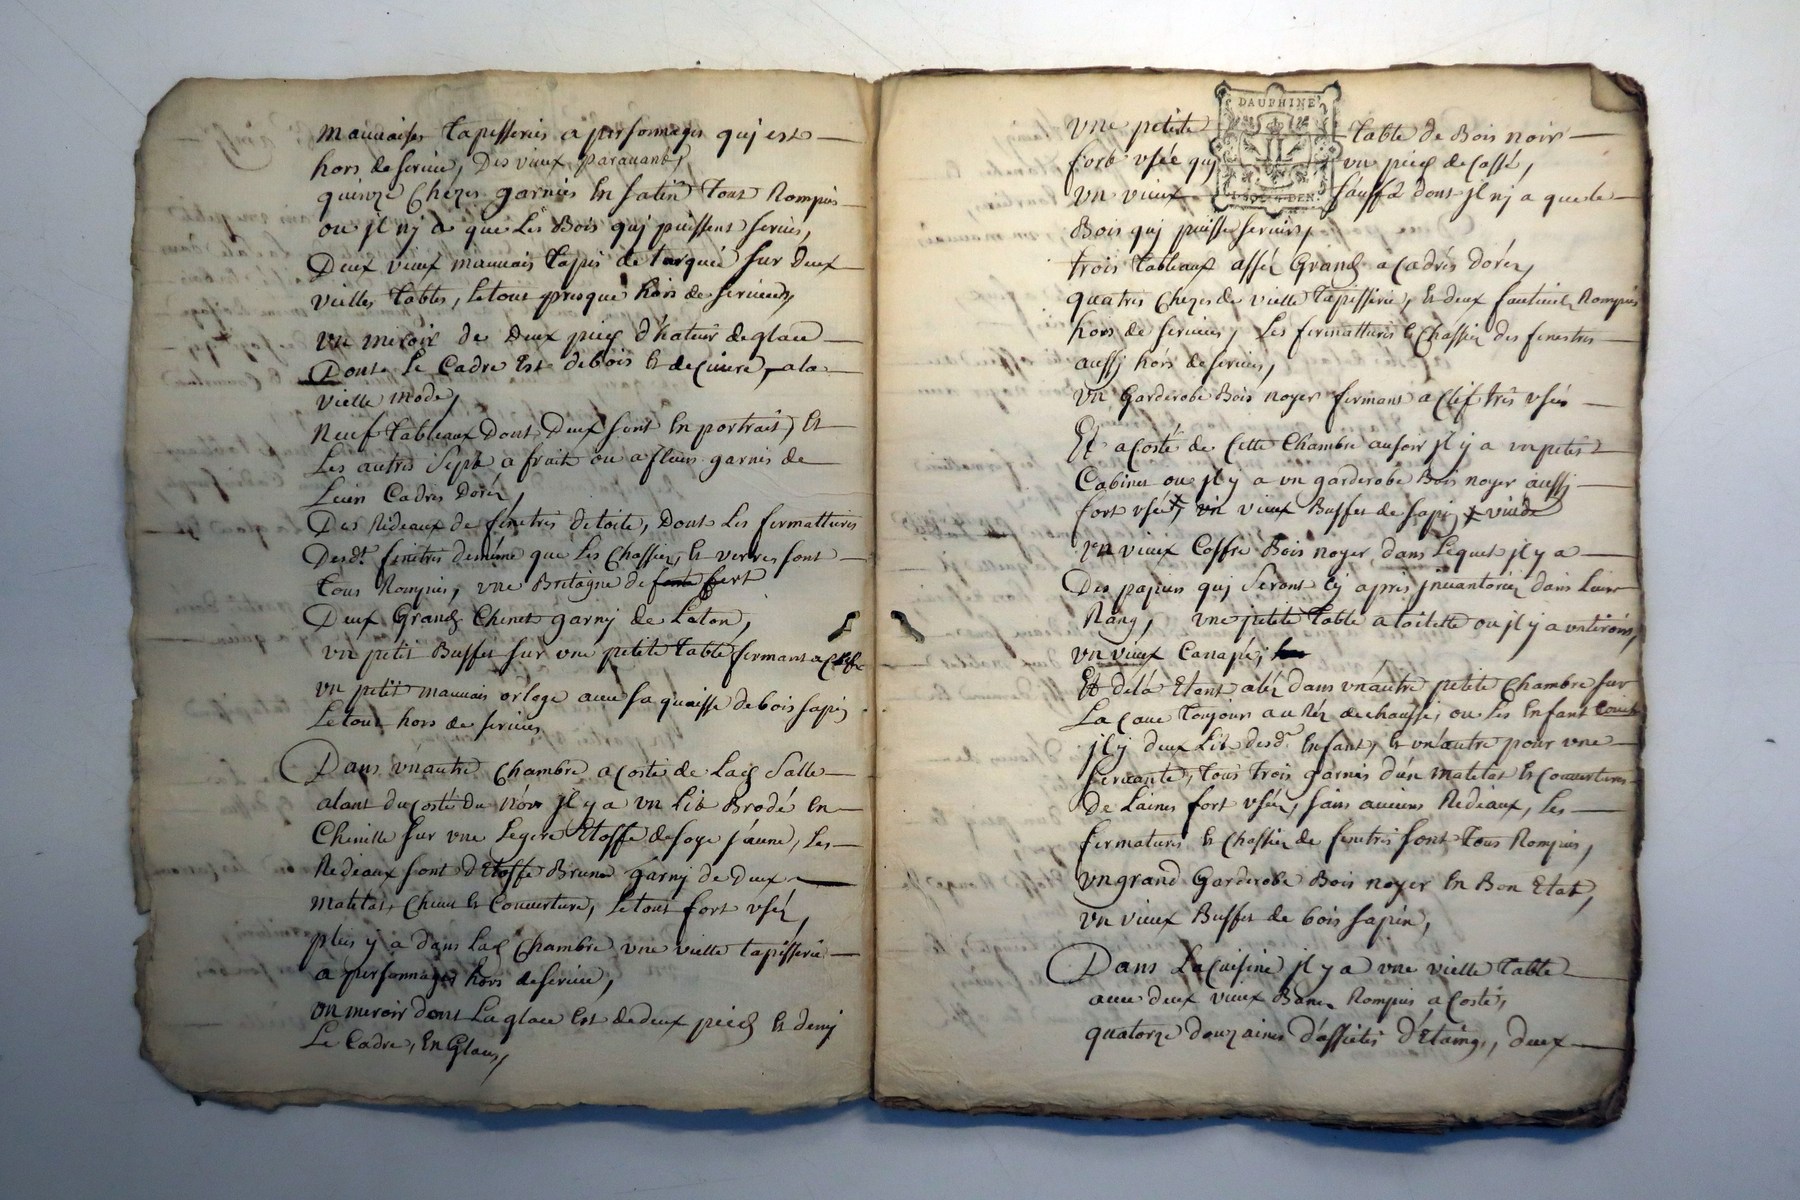 mauuaises tapisseries a personnages quj est
hors de seruice, Des vieux parauants,
quinze chezes garnies En satin tout Rompues
ou jl nj a que Les Bois quj puissent seruir,
Deux vieux mauuais tapis de turquie sur deux
vielles tables, Le tout presque hors de seruices,
vn miroir de deux pieds d'hateur de glace
Dont Le Cadre Est de bois Et de Cuiure, a la
vielle mode,
Neuf tableaux Dont Deux sont En portrait, Et
Les autres Sept a fruits ou a fleurs garnis de
Leurs Cadres Doréz,
Des Rideaux de fenetres de toile, Dont Les fermattures
Desdt. fenetres de méme que Les Chassiez, Et verres sont
tous Rompus, vne Bretagne de fert
Deux Grands Chenets garnj de Laton,
vn petit Buffet sur vne petite table fermant a Cleffs
vn petit mauuais orloge auec sa quaisse de bois sapin
Le tout hors de seruices
Dans vn autre Chambre a Costé de Lad. Salle
alant du costé du Nort jl y a vn Lit Brodé En
Chenille sur vne Legere Etoffe de soye jaune, Les
Rideaux sont d'Etoffe Brune garnj de deux
matelas, Cheuet Et Couuerture, Le tout fort vséz,
plus y a dans Lad. Chambre vne vielle tapisserie
a personnages hors de seruice,
vn miroir dont La glace Est de deux pieds Et demj
Le Cadre, En Glaces,
vne petite table de Bois noir
fort vsée quj vn pied de Cassé,
vn vieux sauffa dont jl nj a que le
Bois quj puisse seruir,
trois tableaux asséz Grands a Cadres doréz,
quatres chezes de vielle tapisserie, Et deux fauteuils Rompus
hors de seruices, Les fermattures Et Chassiez des fenestres
aussj hors de seruices,
vn Garderobe Bois noyer fermant a Clef trés vsés
Et a Costé de Cette Chambre jl y a vn petit
Cabinet ou jl y a vn garderobe Bois noyer aussj
fort vsé, vn vieux Buffet de sapin, vuide
vn vieux Coffre Bois noyer dans Lequel jl y a
Des papiers quj seront Cy apres jnuantoriez dans Leur
Rang, vne petite table a toilette ou jl y a vn tiroirs,
vn vieux Canapé,
Et de la Etant aléz dans vn autre petite Chambre sur
La Caue toujour au Réz de chaussé, ou Les Enfant Couche
jl y deux Lits desdt. Enfant, Et vn autre pour vne
seruante, tous trois garnis d'un matelat Et Couuertures
de Laines fort vséz, sans aucuns Rideaux, Les
fermatures Et Chassiez de fenetres sont tous Rompus,
vn grand Garderobe Bois noyer En Bon Etat,
vn vieux Buffet de bois sapin,
Dans La Cuisine jl y a vne vielle table
auec deux vieux Bancs Rompus a Costé,
quatorze douzaines d'assietes d'Etaing, deux
DAUPHINE